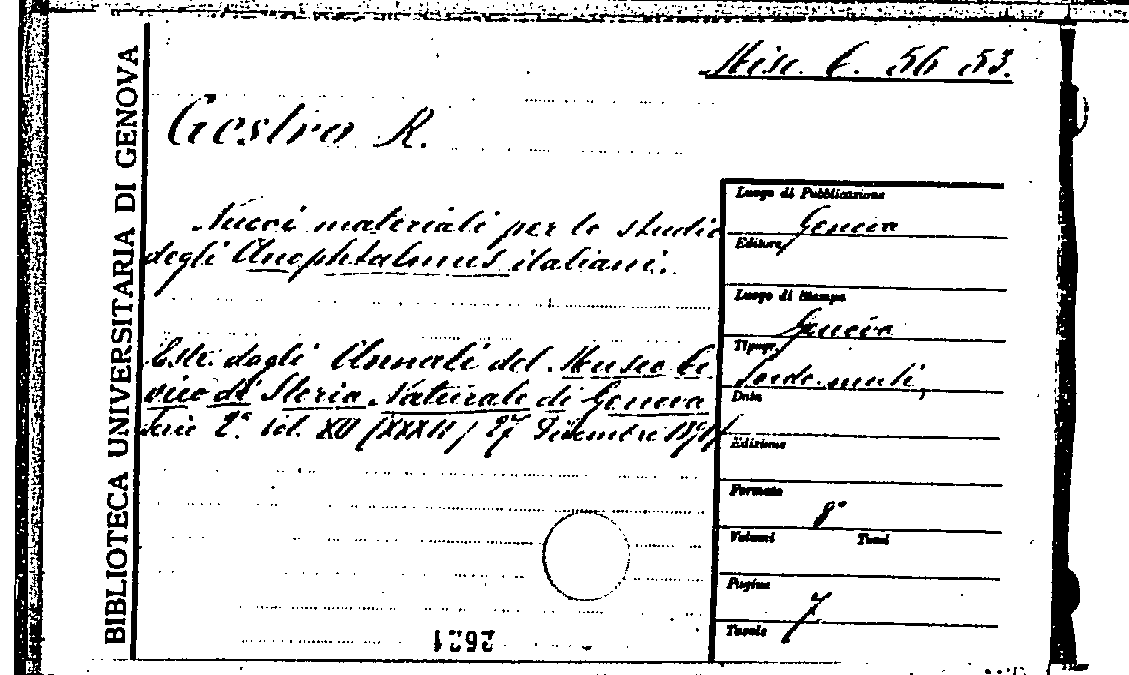 BIBLIOTECA UNIVERSITARIA DI GENOVA
Misc. C. 56 53.
Gestro R.
Nuovi materiali per lo studio
degli Anophtalmus italiani.
Estr. dagli Annali del Museo Ci-
vico di Storia Naturale di Genova
Serie 2ª vol. XII (XXXII) 27 Dicembre
Luogo di Pubblicazione
Genova
Editore
Luogo di Stampa
Genova
Tipogr.
Sordo-muti,
Data
Edizione
Formato
8°
Volumi Tomi
Pagine
7
Tavole
2621